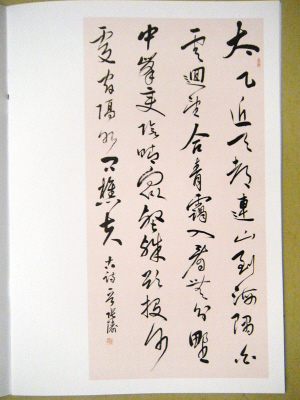 太乙近天都連山到海隅白
雲迴望合青靄入看無分野
中峯變陰晴眾壑殊欲投何
處宿隔水問樵夫
古詩